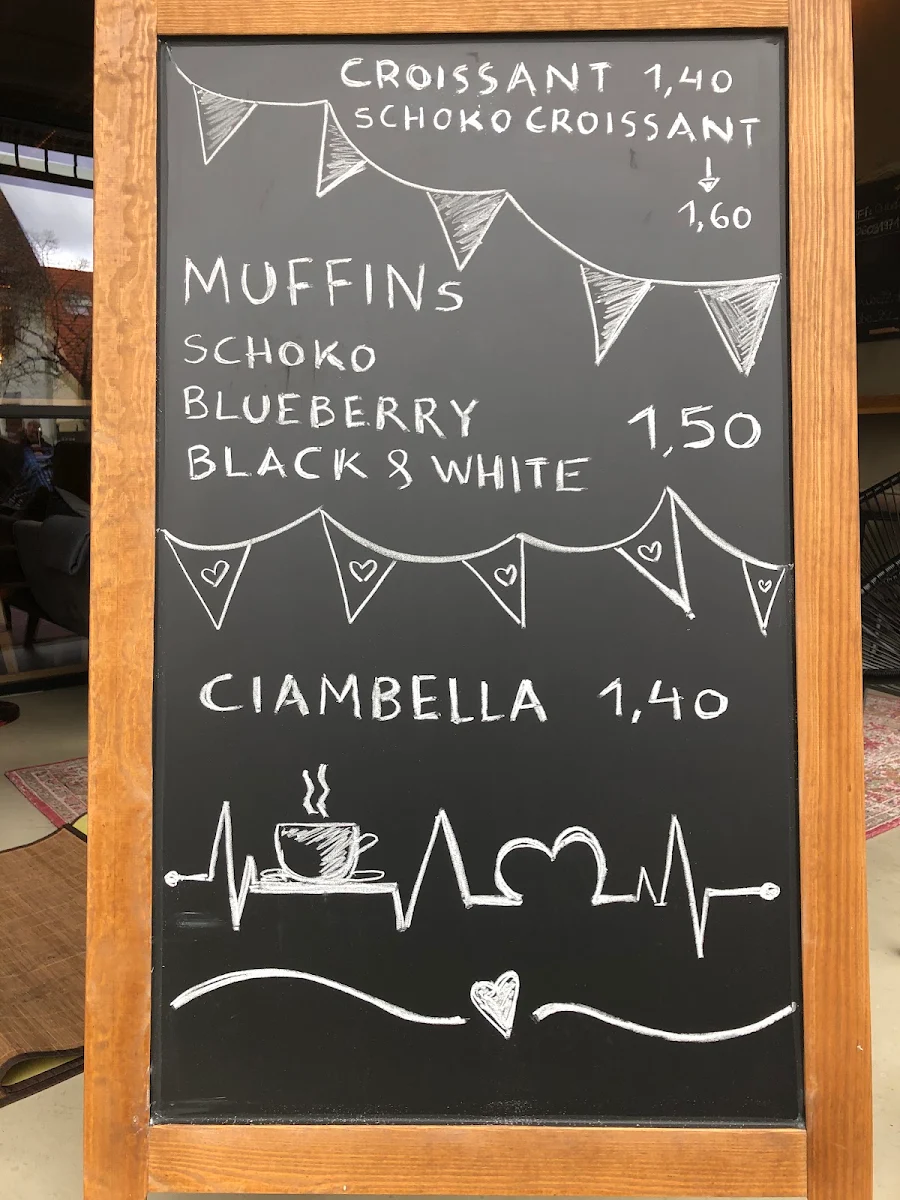 CROISSANT 1,40
SCHOKO CROISSANT
1,60
MUFFINS
SCHOKO
BLUEBERRY
1,50
BLACK & WHITE
CIAMBELLA 1,40